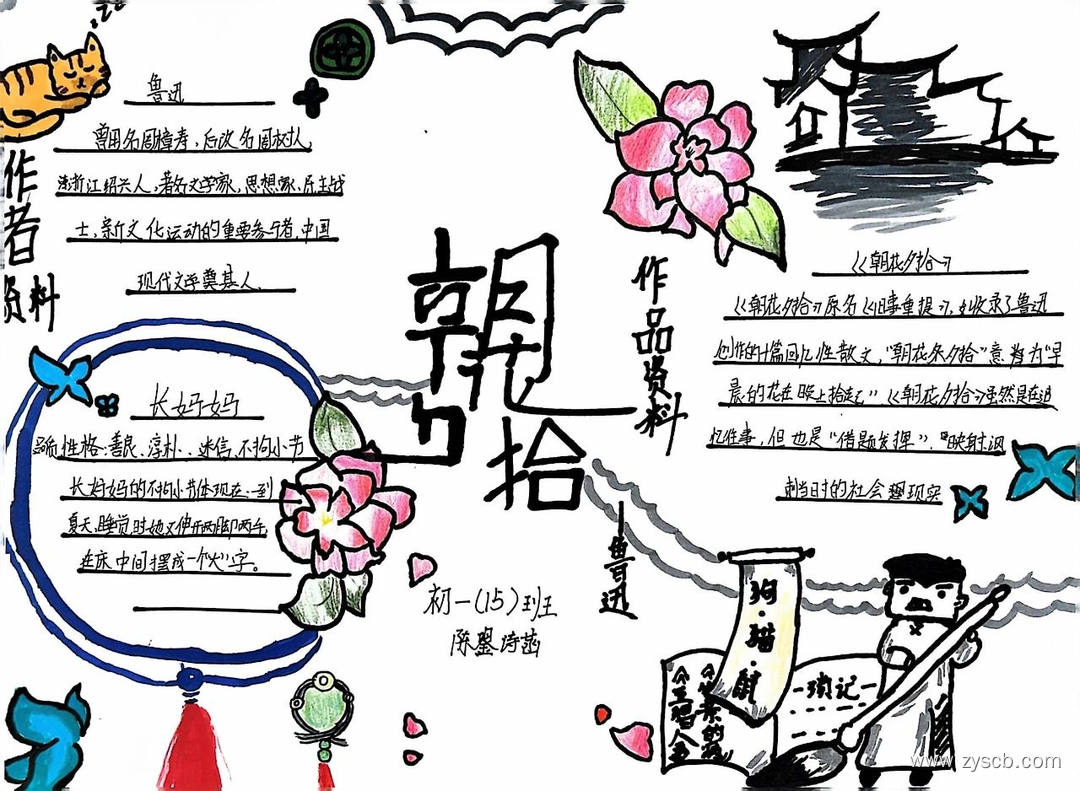 作者资料
鲁迅
曾用名周樟寿，后改名周树人，
浙江绍兴人，著名文学家，思想家，民主战
士，新文化运动的重要参与者，中国
现代文学奠基人。
长妈妈
性格：善良、淳朴、迷信、不拘小节
长妈妈的不拘小节体现在：一到
夏天，睡觉时她又伸开两脚两手，
在床中间摆成一个“大”字。
朝花夕拾
—鲁迅
初一（15）班
作品资料
《朝花夕拾》
《朝花夕拾》原名《旧事重提》，收录了鲁迅
创作的十篇回忆性散文，“朝花夕拾”意为“早
晨的花在晚上拾起” 《朝花夕拾》虽然是在追
忆往事，但也是“借题发挥”，映射讽
刺当时的社会现实
狗·猫·鼠
琐记
www.zyscb.com